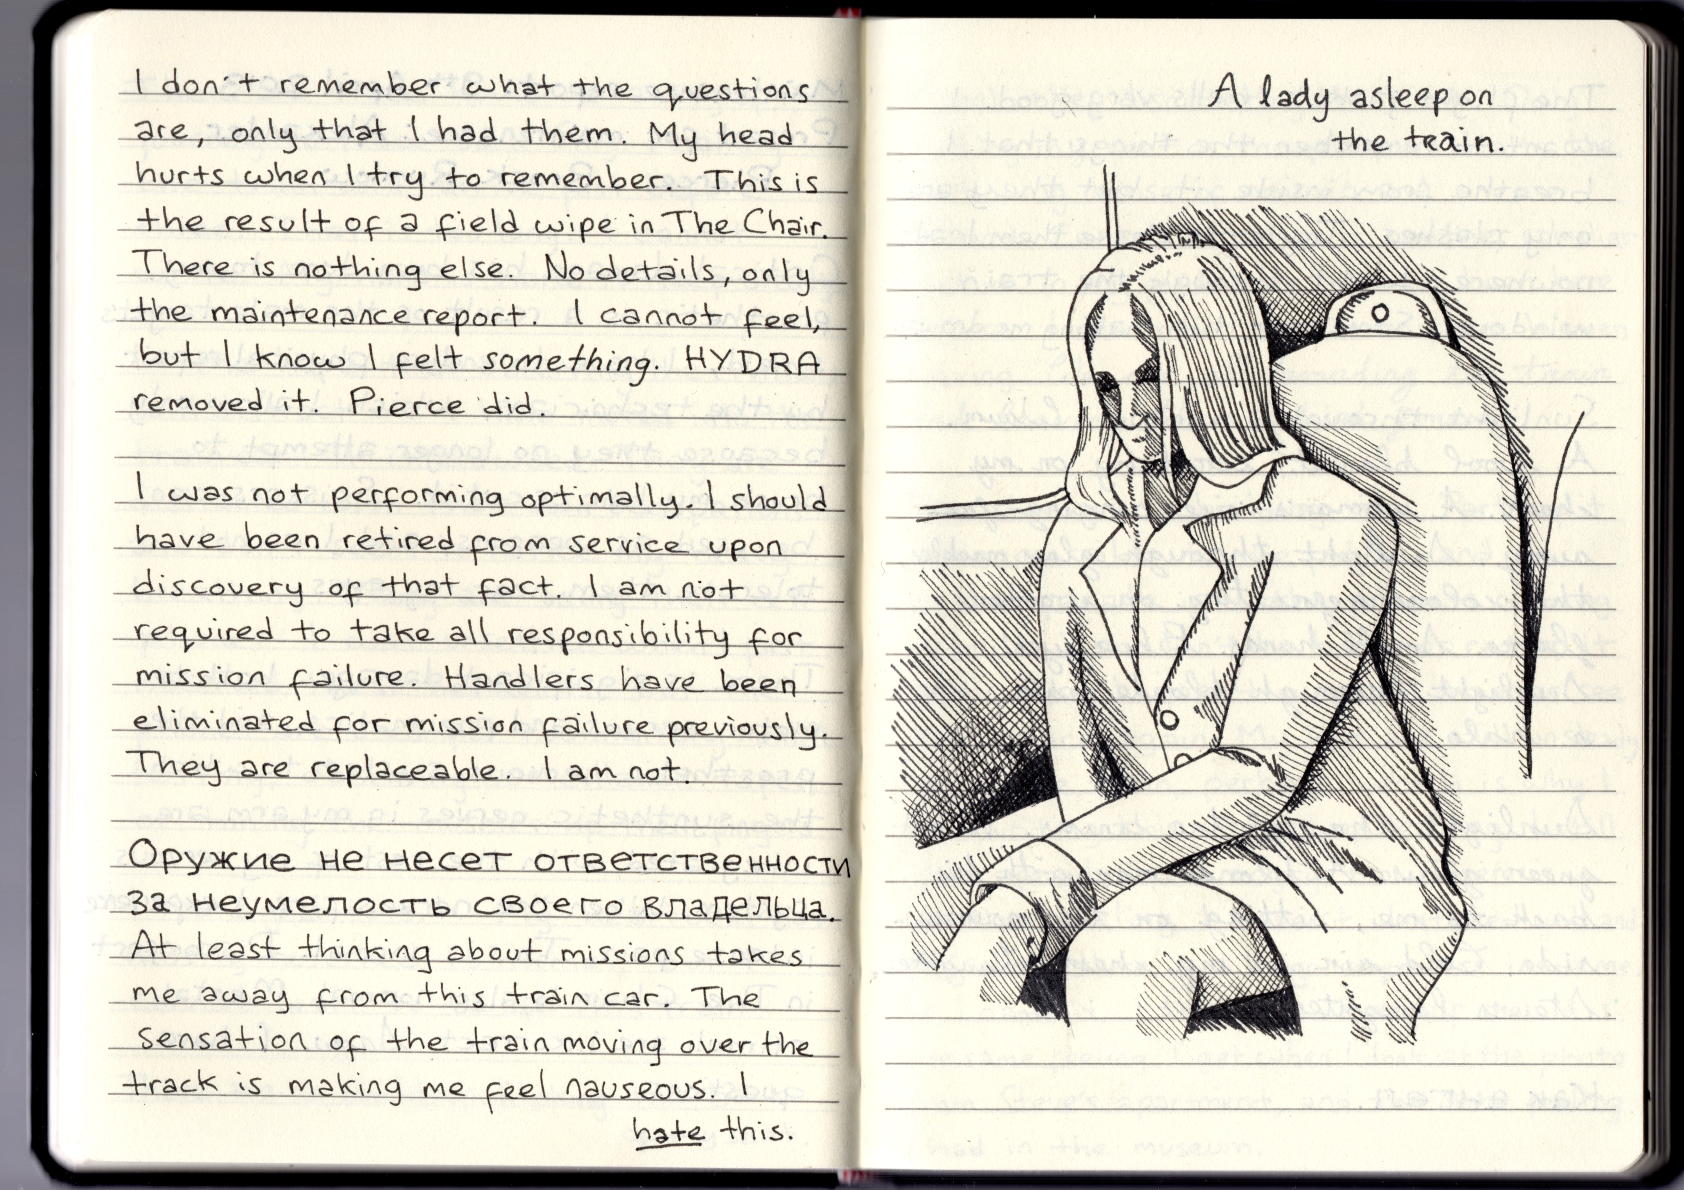 I don't remember what the questions
are, only that I had them. My head
hurts when I try to remember. This is
the result of a field wipe in The Chair.
There is nothing else. No details, only
the maintenance report. I cannot feel,
but I know I felt something. HYDRA
removed it. Pierce did.
I was not performing optimally. I should
have been retired from service upon
discovery of that fact. I am not
required to take all responsibility for
mission failure. Handlers have been
eliminated for mission failure previously.
They are replaceable. I am not.
Оружие не несет ответственности
за неумелость своего владельца.
At least thinking about missions takes
me away from this train car. The
sensation of the train moving over the
track is making me feel nauseous. I
hate this.
A lady asleep on
the train.